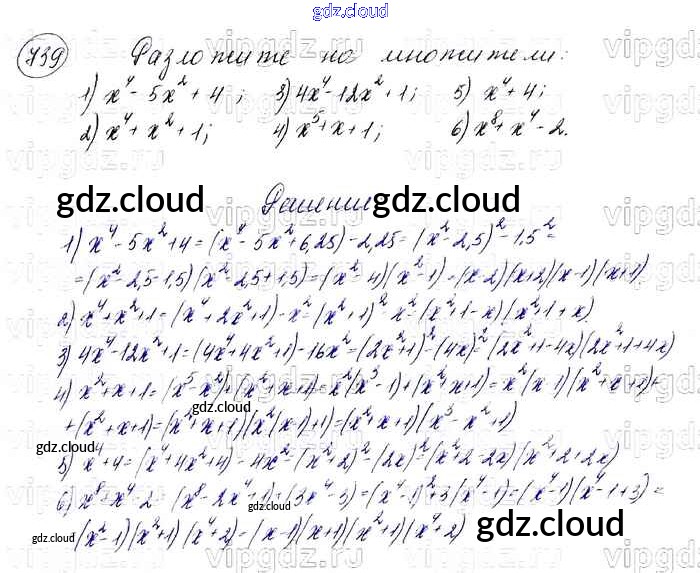 gdz.cloud
739 Разложите на множители:
1) x⁴ - 5x² + 4; 3) 4x⁴ - 12x² + 1; 5) x⁴ + 4;
2) x⁴ + x² + 1; 4) x⁵ + x + 1; 6) x⁸ + x⁴ - 2.
gdz.cloud Решение gdz.cloud
1) x⁴ - 5x² + 4 = (x⁴ - 5x² + 6,25) - 2,25 = (x² - 2,5)² - 1,5² =
= (x² - 2,5 - 1,5)(x² - 2,5 + 1,5) = (x² - 4)(x² - 1) = (x - 2)(x + 2)(x - 1)(x + 1)
2) x⁴ + x² + 1 = (x⁴ + 2x² + 1) - x² = (x² + 1)² - x² = (x² + 1 - x)(x² + 1 + x)
3) 4x⁴ - 12x² + 1 = (4x⁴ + 4x² + 1) - 16x² = (2x² + 1)² - (4x)² = (2x² + 1 - 4x)(2x² + 1 + 4x)
4) x² + x + 1 = (x⁵ - x²) + (x² + x + 1) = x²(x³ - 1) + (x² + x + 1) = x²(x - 1)(x² + x + 1) +
+ (x² + x + 1) = (x² + x + 1)(x²(x - 1) + 1) = (x² + x + 1)(x³ - x² + 1)
gdz.cloud
5) x⁴ + 4 = (x⁴ + 4x² + 4) - 4x² = (x² + 2)² - (2x)² = (x² + 2 - 2x)(x² + 2 + 2x)
gdz.cloud
6) x⁸ + x⁴ - 2 = (x⁸ - 2x⁴ + 1) + (3x⁴ - 3) = (x⁴ - 1)² + 3(x⁴ - 1) = (x⁴ - 1)(x⁴ - 1 + 3) =
gdz.cloud
(x² - 1)(x² + 1)(x⁴ + 2) = (x - 1)(x + 1)(x² + 1)(x⁴ + 2)
gdz.cloud
gdz.cloud